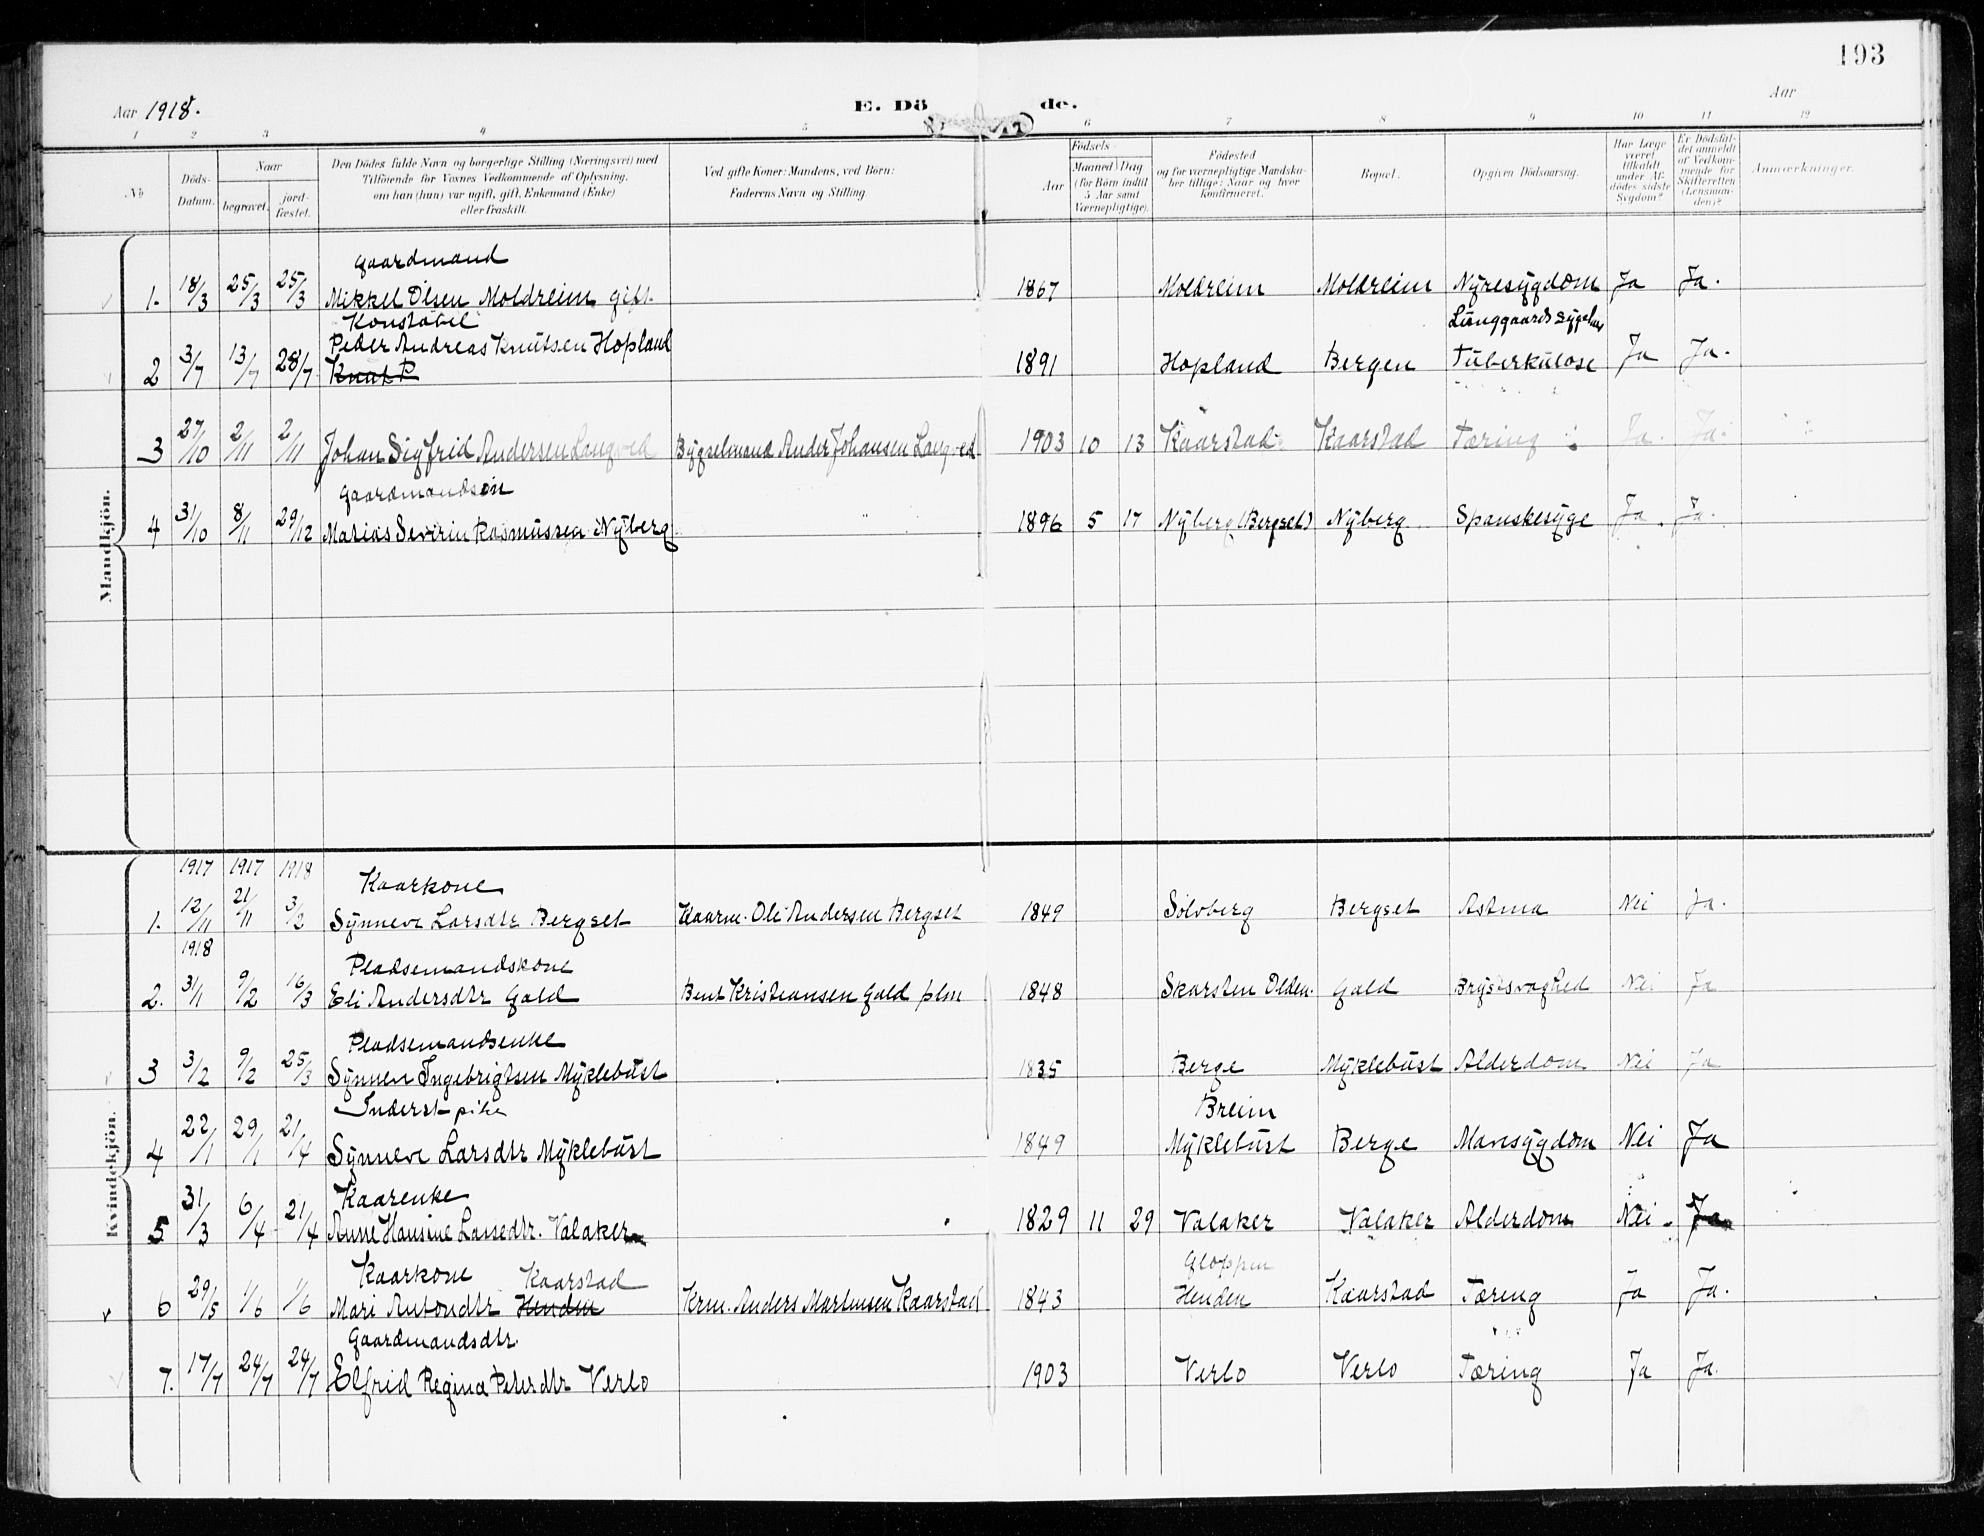 193
Aar 1918.
E. Dö
de.
Aar
1 2 3 4 5 6 7 8 9 10 11 12
No
Döds-Datum.
Naar
begravet.
jord-fæstet.
Den Dödes fulde Navn og borgerlige Stilling (Næringsvei) med
Tilföiende for Voxnes Vedkommende af Oplysning,
om han (hun) var ugift, gift, Enkemand (Enke)
eller fraskilt.
Ved gifte Koner: Mandens, ved Börn:
Faderens Navn og Stilling
Födsels-
Aar
Maaned Dag
(for Börn indtil
5 Aar samt
Værnepligtige).
Födested
og for værnepligtige Mandska-
ber tillige: Naar og hvor
konfirmeret.
Bopæl.
Opgiven Dödsaarsag.
Har Læge
været
tilkaldt
under Af-
dödes sidste
Sygdom?
Er Dödsfal-
det anmeldt
af Vedkom-
mende for
Skifteretten
(Lensman-
den)?
Anmærkninger.
Mandkjön.
Gaardmand
1. 18/3 25/3 25/3 Mikkel Olsen Moldreim gift. 1867 Moldreim Moldreim Nyresygdom Ja Ja.
Konstabel
Lunggaards sygehus
Peder Andreas Knutsen Hopland
2 3/7 13/7 28/7 Knut P 1891 Hopland Bergen Tuberkulose Ja Ja.
3 27/10 2/11 2/11 Johan Sigfrid Andersen Langved Bygselmand Ander Johansen Langved 1903 10 13 Kaarstad Kaarstad Tæring Ja. Ja.
Gaardmandsøn
4 31/10 8/11 29/12 Matias Severin Rasmussen Nyberg 1896 5 17 Nyberg (Bergset) Nyberg Spanskesyge Ja. Ja.
Kvindekjön.
1917 1917 1918
Kaarkone
1. 12/11 21/11 3/2 Synneve Larsdtr Bergset Kaarm. Ole Andersen Bergset 1849 Solvberg Bergset Astma Nei Ja.
1918
Pladsemandskone
2. 31/1 9/2 16/3 Eli Andersdtr Gald Bent Kristiansen Gald plm 1848 Skarsten Olden. Gald Brystsvaghed Nei Ja
Pladsemandsenke
3 3/2 9/2 25/3 Synnev Ingebrigtsen Myklebust 1835 Berge Myklebust Alderdom Nei Ja
Inderst pike
Breim
4 22/1 29/1 21/4 Synneve Larsdtr Myklebust 1849 Myklebust Berge Mavesygdom Nei Ja
Kaarenke
5 31/3 6/4 21/4 Anne Hansine Lassedtr. Valaker 1829 11 29 Valaker Valaker Alderdom Nei Ja
Kaarkone Kaarstad
Gloppen
6 29/5 1/6 1/6 Mari Antondtr Henden Krm. Anders Martensen Kaarstad 1843 Henden Kaarstad Tæring Ja Ja.
Gaardmandsdtr
7. 17/7 24/7 24/7 Elfrid Regina Petersdtr Verlo 1903 Verlo Verlo Tæring Ja Ja.